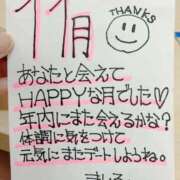 11月
THANKS
あなたと会えて
HAPPYな月でした♡
年内にまた会えるかな?
体調に気をつけて
元気にまたデートしようね。